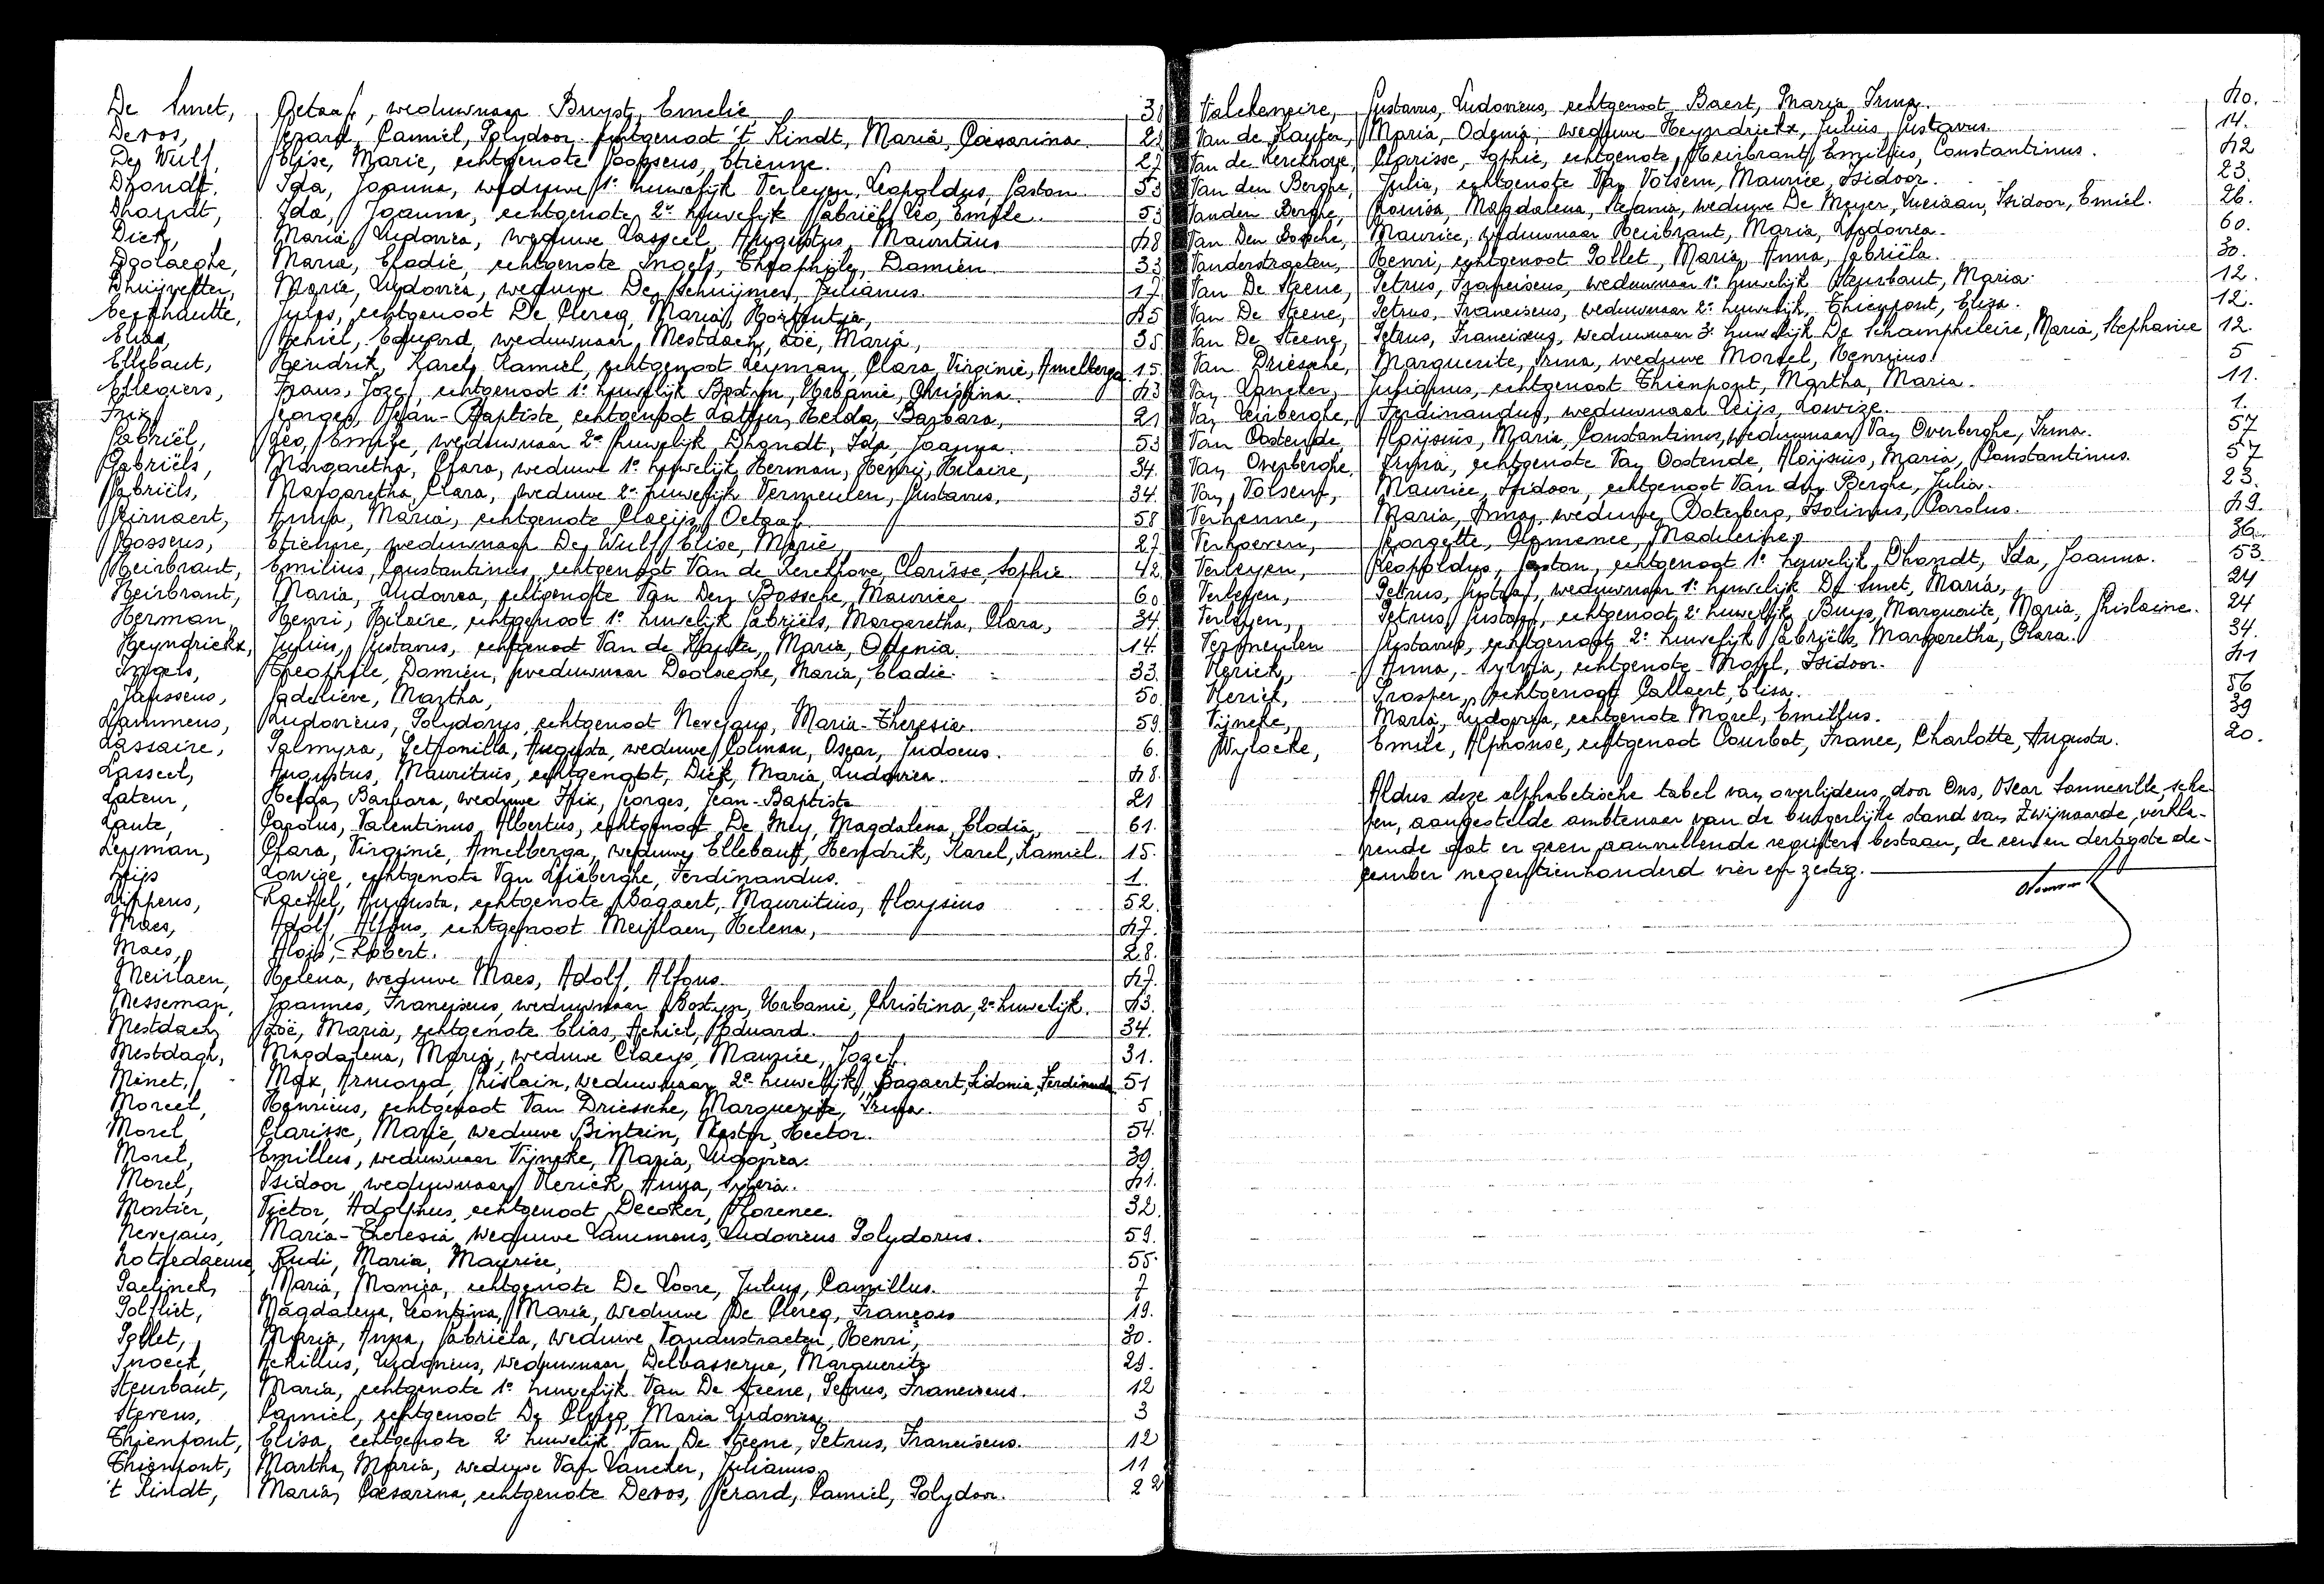 De Smet, Octaaf, weduwnaar Buyst, Emelie, 38
Devos, Gerard, Camiel, Polydoor echtgenoot 't Kindt, Maria, Caesarina 22
De Wulf, Elise, Marie, echtgenote Goossens, Etienne. 27
Dhondt, Ida, Joanna, weduwe 1e huwelijk Verleyen, Leopoldus, Gaston 53
Dhondt, Ida, Joanna, echtgenote 2e huwelijk Gabriël, Leo, Emile. 53
Dick, Maria, Ludovica, weduwe Lasseel, Augustus, Mauritius 48
Doolaeghe, Maria, Elodie, echtgenote Ingels, Theophile, Damien 33
Dhuijvetter, Maria, Ludovica, weduwe De Schuijmer, Julianus. 17
Eeckhautte, Jules, echtgenoot De Clercq, Maria, Hortentia, 45
Elias, Achiel, Eduard, weduwnaar Mestdach, Zoë, Maria, 35
Ellebaut, Hendrik, Karel, Kamiel, echtgenoot Leyman, Clara, Virginie, Amelberga 15
Ellegiers, Frans, Jozef, echtgenoot 1e huwelijk Bostyn, Urbanie, Christina 43
Frix, Georges, Jean-Baptiste, echtgenoot Lateur, Helda, Barbara, 21
Gabriël, Leo, Emile, weduwnaar 2e huwelijk Dhondt, Ida, Joanna. 53
Gabriëls, Margaretha, Clara, weduwe 1e huwelijk Herman, Henri, Hilaire, 34.
Gabriëls, Margaretha, Clara, weduwe 2e huwelijk Vermeulen, Gustavus, 34.
Geirnaert, Anna, Maria, echtgenote Claeijs, Octaaf 58
Goossens, Etienne, weduwnaar De Wulf, Elise, Marie, 27
Heirbraut, Emilius, Constantinus, echtgenoot Van de Kerckhove, Clarisse, Sophie 42
Heirbrant, Maria, Ludovica, echtgenote Van Den Bossche, Maurice 60
Herman, Henri, Hilaire, echtgenoot 1e huwelijk Gabriëls, Margaretha, Clara, 34.
Heyndrickx, Julius, Gustavus, echtgenoot Van de Kauter, Maria, Odenia. 14.
Ingels, Theophile, Damien, weduwnaar Doolaeghe, Maria, Elodie. 33.
Janssens, Godelieve, Martha, 50
Lammens, Ludovicus, Polydorus, echtgenoot Nevejans, Maria-Theresia. 59.
Lassaire, Palmyra, Petronilla, Augusta, weduwe Colman, Oscar, Judocus. 6.
Lasseel, Augustus, Mauritius, echtgenoot, Dick, Maria, Ludovica. 48.
Lateur, Helda, Barbara, weduwe Frix, Georges, Jean-Baptiste 21
Laute, Carolus, Valentinus, Albertus, echtgenoot De Mey, Magdalena, Elodia, 61.
Leyman, Clara, Virginie, Amelberga, weduwe Ellebaut, Hendrik, Karel, Kamiel. 15.
Leijs Lowize, echtgenote Van Leirberghe, Ferdinandus. 1.
Lippens, Rachel, Augusta, echtgenote Bagaert, Mauritius, Aloysius 52.
Maes, Adolf, Alfons, echtgenoot Meirlaen, Helena, 47.
Maes, Aloïs, Robert. 28.
Meirlaen, Helena, weduwe Maes, Adolf, Alfons. 47.
Messeman, Joannes, Franciscus, weduwnaar Bostyn, Urbanie, Christina, 2e huwelijk. 43.
Mestdach, Zoë, Maria, echtgenote Elias, Achiel, Eduard. 34.
Mestdagh, Magdalena, Maria, weduwe Claeys, Maurice, Jozef. 31.
Minet, Max, Armand, Ghislain, weduwnaar 2e huwelijk, Bagaert, Sidonia, Ferdinanda 51
Morel, Henricus, echtgenoot Van Driessche, Marguerite, Irma. 5
Morel, Clarisse, Marie, weduwe Bintein, Nestor, Hector. 54.
Morel, Emilius, weduwnaar Vijncke, Maria, Ludovica. 39
Morel, Isidoor, weduwnaar Nerick, Anna, Sylvia. 41.
Mortier, Victor, Adolphus, echtgenoot Decoker, Florence. 32.
Nevejans, Maria-Theresia, weduwe Lammens, Ludovicus Polydorus. 59.
Notredaeme, Rudi, Maria, Maurice, 55.
Paelinck, Maria, Monica, echtgenote De Loore, Julius, Camillus. 7
Polfliet, Magdalena, Leontina, Maria, weduwe De Clercq, François 19.
Pollet, Maria, Anna, Gabriëla, weduwe Vanderstraeten, Henri, 30.
Snoeck, Achillus, Ludovicus, weduwnaar Delbasserue, Marguerite 29.
Steurbaut, Maria, echtgenote 1e huwelijk Van De Steene, Petrus, Franciscus. 12
Stevens, Camiel, echtgenoot De Clercq, Maria Ludovica. 3
Thienpont, Elisa, echtgenote 2e huwelijk Van De Steene, Petrus, Franciscus. 12
Thienpont, Martha, Maria, weduwe Van Vancker, Julianus. 11
't Kindt, Maria, Caesarina, echtgenote Devos, Gerard, Camiel, Polydoor. 22
Valckeneire, Gustavus, Ludovicus, echtgenoot Baert, Maria, Irma. 40.
Van de Kauter, Maria, Odenia, weduwe Heyndrickx, Julius, Gustavus. 14.
Van de Kerckhove, Clarisse, Sophie, echtgenote, Heirbrant, Emilius, Constantinus. 42
Van den Berghe, Julia, echtgenote Van Volsem, Maurice, Isidoor. 23.
Vanden Berghe, Louisa, Magdalena, Stefania, weduwe De Meyer, Luciaan, Isidoor, Emiel. 26.
Van Den Bossche, Maurice, weduwnaar Heirbrant, Maria, Ludovica. 60.
Vanderstraeten, Henri, echtgenoot Pollet, Maria, Anna, Gabriëla. 30.
Van De Steene, Petrus, Franciscus, weduwnaar 1e huwelijk Steurbaut, Maria. 12.
Van De Steene, Petrus, Franciscus, weduwnaar 2e huwelijk, Thienpont, Eliza. 12.
Van De Steene, Petrus, Franciscus, weduwnaar 3e huwelijk De Schampheleire, Maria, Stephanie 12.
Van Driessche, Marguerite, Irma, weduwe Morel, Henricus. 5
Van Vancker, Julianus, echtgenoot Thienpont, Martha, Maria. 11.
Van Leirberghe, Ferdinandus, weduwnaar Leijs, Lowize. 1.
Van Oostende Aloijsius, Maria, Constantinus, weduwnaar Van Overberghe, Irma. 57
Van Overberghe, Irma, echtgenote Van Oostende, Aloijsius, Maria, Constantinus. 57
Van Volsem, Maurice, Isidoor, echtgenoot Van den Berghe, Julia. 23.
Verhenne, Maria, Anna, weduwe Boterberg, Isolinus, Carolus. 49.
Verhoeven, Georgette, Clemence, Madeleine, 36.
Verleyen, Leopoldus, Gaston, echtgenoot 1e huwelijk, Dhondt, Ida, Joanna. 53.
Verleyen, Petrus, Gustaaf, weduwnaar 1e huwelijk De Smet, Maria, 24
Verleyen, Petrus, Gustaaf, echtgenoot 2e huwelijk, Buys, Marguerite, Maria, Ghislaine. 24
Vermeulen Gustavus, echtgenoot 2e huwelijk Gabriëls, Margaretha, Clara. 34.
Nerick, Anna, Sylvia, echtgenote Morel, Isidoor. 41
Nerick, Prosper, echtgenoot Callaert, Elisa. 56
Vijncke, Maria, Ludovica, echtgenote Morel, Emilius. 39
Wylocke, Emile, Alphonse, echtgenoot Courbot, France, Charlotte, Augusta. 20.
Aldus deze alphabetische tabel van overlijdens door Ons, Oscar Sonneville, sche-
pen, aangestelde ambtenaar van de burgerlijke stand van Zwijnaarde, verkla-
rende dat er geen aanvullende registers bestaan, de een en dertigste de-
cember negentienhonderd vier en zestig.